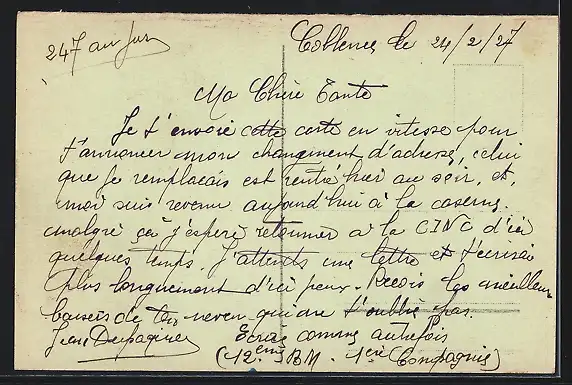 247 au jus
Coblence le 24/2/27
Ma Chère Tante
Je t'envoie cette carte en vitesse pour
t'annoncer mon changement d'adresse, celui
que je remplaçais est rentré hier au soir, et,
moi suis revenu aujourd'hui à la caserne.
malgré ça j'espère retourner à la CINC d'ici
quelques temps. J'attends une lettre et t'écrirai
plus longuement d'ici peu. Reçois les meilleurs
baisers de ton neveu qui ne t'oublie pas.
Jean
Ecrire comme autrefois
(12ème BM. 1ère Compagnie)